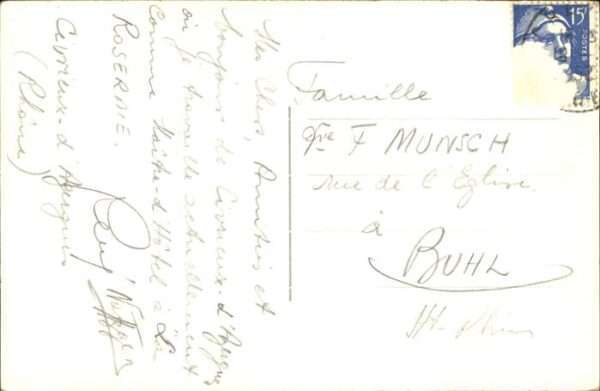 Mes Chers, Amitiés et
bonjour de Civrieux-d'Azergues
où je travaille actuellement
comme Maître-d'Hôtel à La
ROSERAIE.
Civrieux-d'Azergues
(Rhône)
15F
POSTES
Famille
F MUNSCH
rue de l'Eglise
à
BUHL
Ht-Rhin